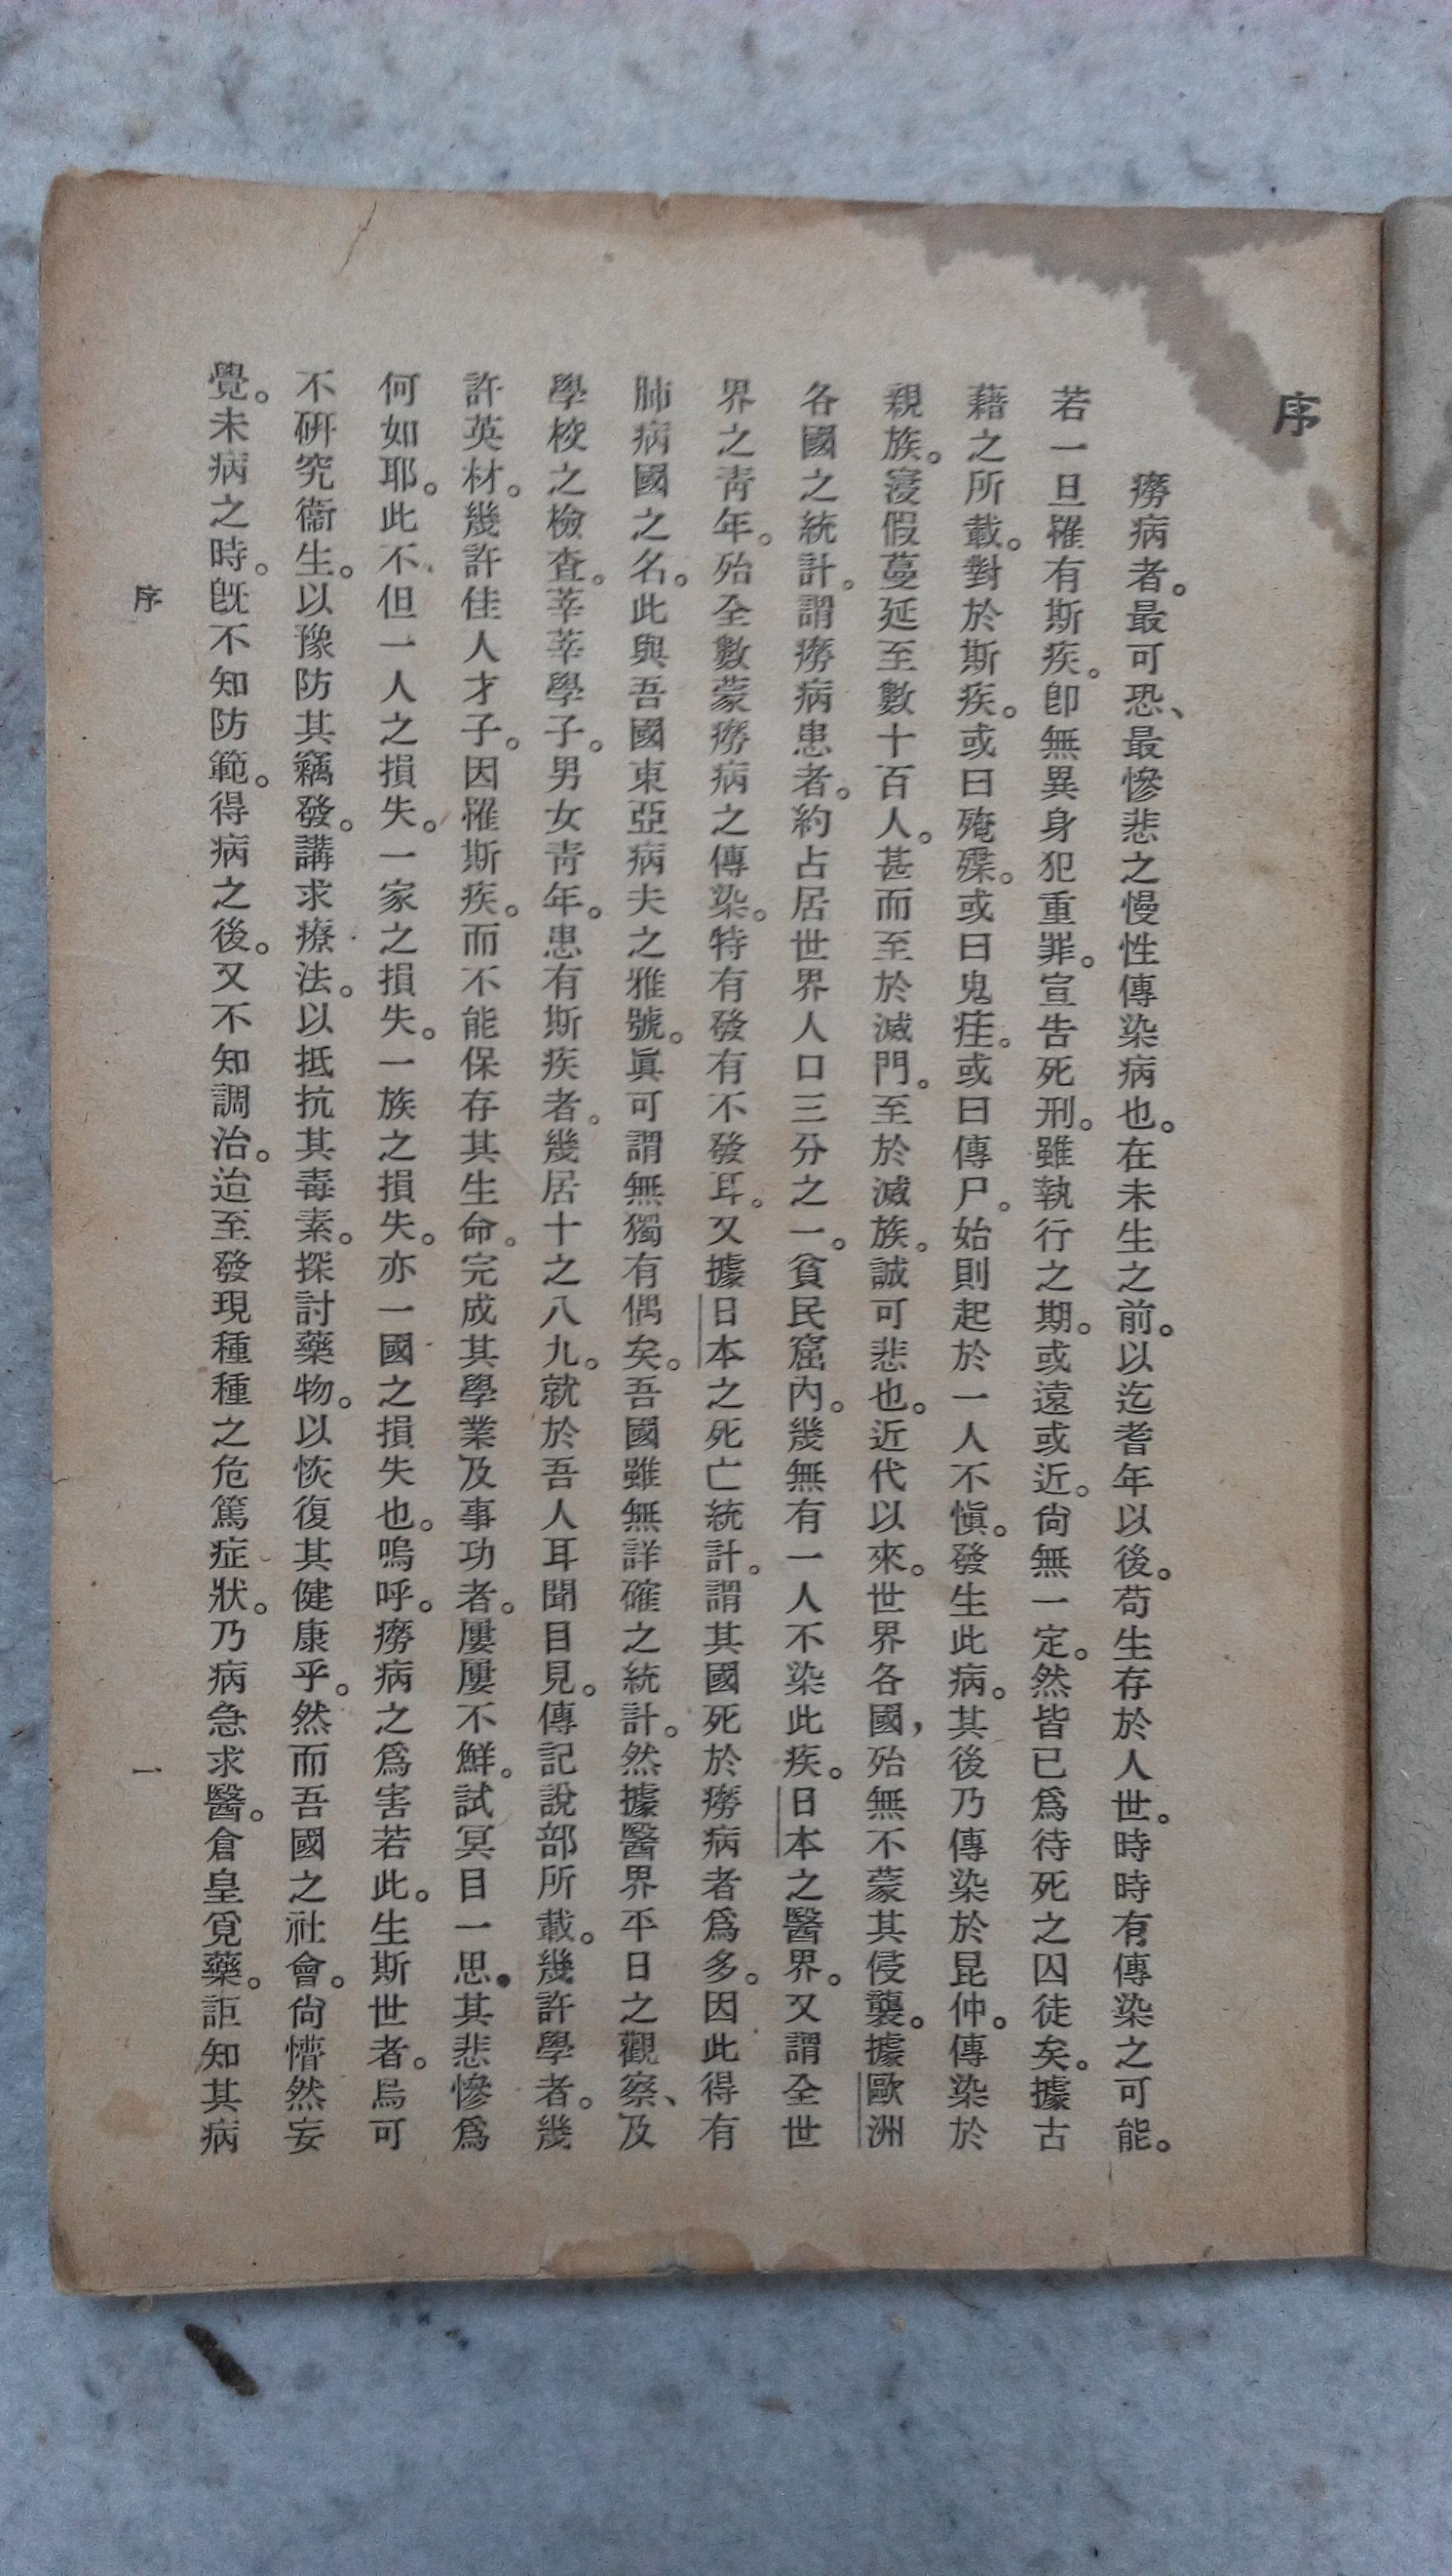 序
癆病者。最可恐、最慘悲之慢性傳染病也。在未生之前。以迄耆年以後。苟生存於人世。時時有傳染之可能。
若一旦罹有斯疾。卽無異身犯重罪。宣吿死刑。雖執行之期。或遠或近。尙無一定。然皆已爲待死之囚徒矣。據古
藉之所載。對於斯疾。或曰殗殜。或曰鬼疰。或曰傳尸。始則起於一人不愼。發生此病。其後乃傳染於昆仲。傳染於
親族。寖假蔓延至數十百人。甚而至於滅門。至於滅族。誠可悲也。近代以來。世界各國，殆無不蒙其侵襲。據歐洲
各國之統計。謂癆病患者。約占居世界人口三分之一。貧民窟內。幾無有一人不染此疾。日本之醫界。又謂全世
界之靑年。殆全數蒙癆病之傳染。特有發有不發耳。又據日本之死亡統計。謂其國死於癆病者爲多。因此得有
肺病國之名。此與吾國東亞病夫之雅號。眞可謂無獨有偶矣。吾國雖無詳確之統計。然據醫界平日之觀察、及
學校之檢查。莘莘學子。男女靑年。患有斯疾者。幾居十之八九。就於吾人耳聞目見。傳記說部所載。幾許學者。幾
許英材。幾許佳人才子。因罹斯疾。而不能保存其生命。完成其學業及事功者。屢屢不鮮。試冥目一思。其悲慘爲
何如耶。此不但一人之損失。一家之損失。一族之損失。亦一國之損失也。嗚呼。癆病之爲害若此。生斯世者。烏可
不硏究衞生。以豫防其竊發。講求療法。以抵抗其毒素。探討藥物。以恢復其健康乎。然而吾國之社會。尙懵然妄
覺。未病之時。旣不知防範。得病之後。又不知調治。迨至發現種種之危篤症狀。乃病急求醫。倉皇覓藥。詎知其病
序
一